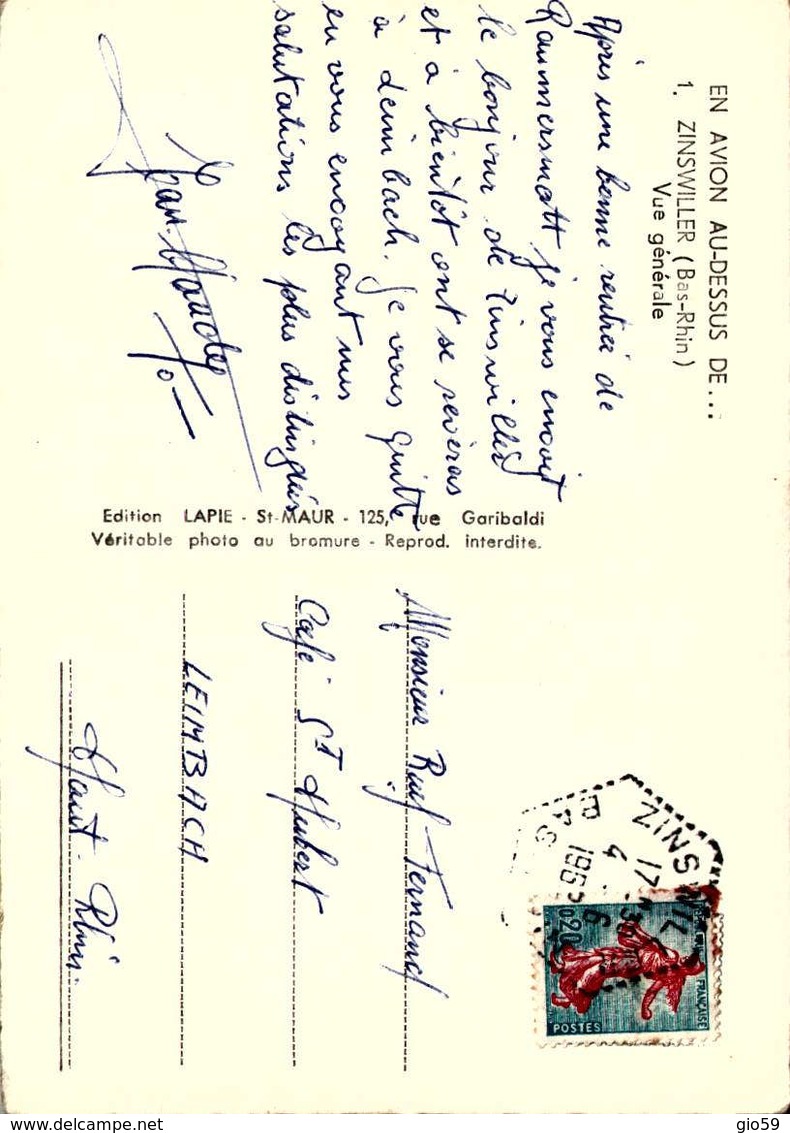 EN AVION AU-DESSUS DE...
1. ZINSWILLER (Bas-Rhin)
Vue générale
Après une bonne rentrée de
Rammersmatt je vous envoit
le bonjour de Zinswiller
et à bientôt ont se reveras
à Leimbach. Je vous quitte
en vous envoyant mes
salutations les plus distingués
Jean
Edition LAPIE - St-MAUR - 125, rue Garibaldi
Véritable photo au bromure - Reprod. interdite.
ZINSWIL
17 30
4 - 6
196
BAS
0,20
FRANÇAISE
POSTES
Monsieur Ruef Fernand
Café St Hubert
LEIMBACH
Haut-Rhin.
gio59